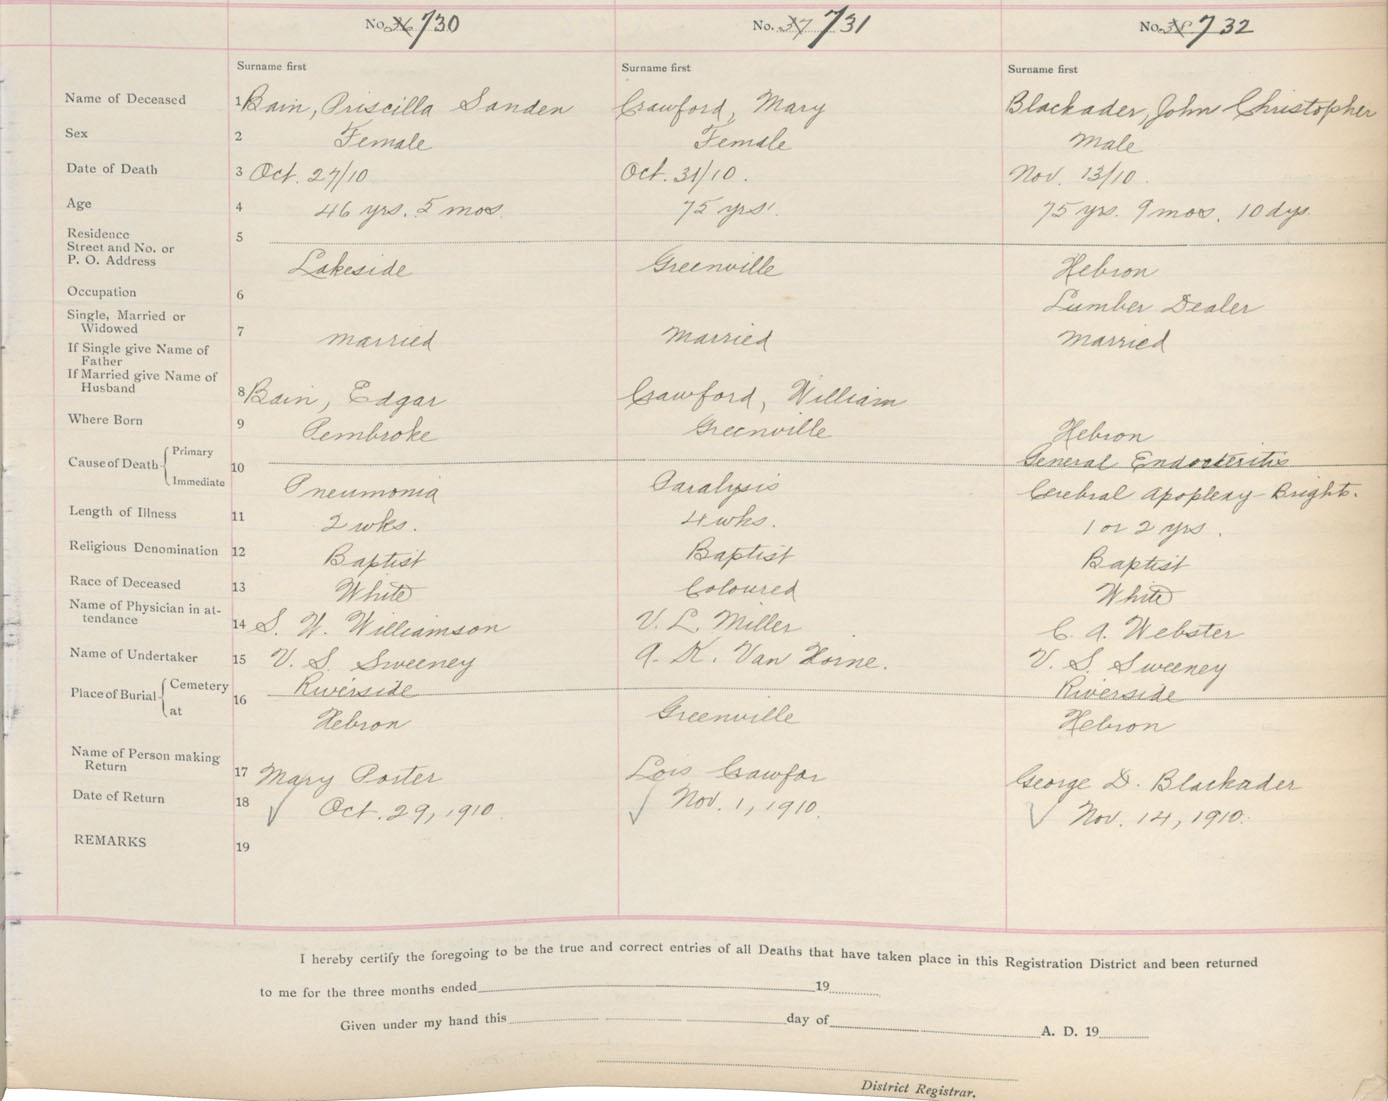 No. 36 730 No. 37 731 No. 38 732
Surname first Surname first Surname first
Name of Deceased 1 Bain, Priscilla Sanden Crawford, Mary Blackader, John Christopher
Sex 2 Female Female Male
Date of Death 3 Oct. 27/10 Oct. 31/10. Nov. 13/10.
Age 4 46 yrs. 5 mos. 75 yrs. 75 yrs. 9 mos. 10 dys.
Residence
Street and No. or
P. O. Address 5 Lakeside Greenville Hebron
Occupation 6 Lumber Dealer
Single, Married or
Widowed 7 married Married Married
If Single give Name of
Father
If Married give Name of
Husband 8 Bain, Edgar Crawford, William
Where Born 9 Pembroke Greenville Hebron
Cause of Death Primary 10 General Endarteritis
Immediate Pneumonia Paralysis Cerebral Apoplexy - Brights.
Length of Illness 11 2 wks. 4 wks. 1 or 2 yrs.
Religious Denomination 12 Baptist Baptist Baptist
Race of Deceased 13 White Coloured White
Name of Physician in at-
tendance 14 S. W. Williamson V. L. Miller C. A. Webster
Name of Undertaker 15 V. S. Sweeney A. K. Van Horne. V. S. Sweeney
Place of Burial Cemetery 16 Riverside Riverside
at Hebron Greenville Hebron
Name of Person making
Return 17 Mary Porter Lois Crawfor George D. Blackader
Date of Return 18 Oct. 29, 1910. Nov. 1, 1910. Nov. 14, 1910.
REMARKS 19
I hereby certify the foregoing to be the true and correct entries of all Deaths that have taken place in this Registration District and been returned
to me for the three months ended 19
Given under my hand this day of A. D. 19
District Registrar.